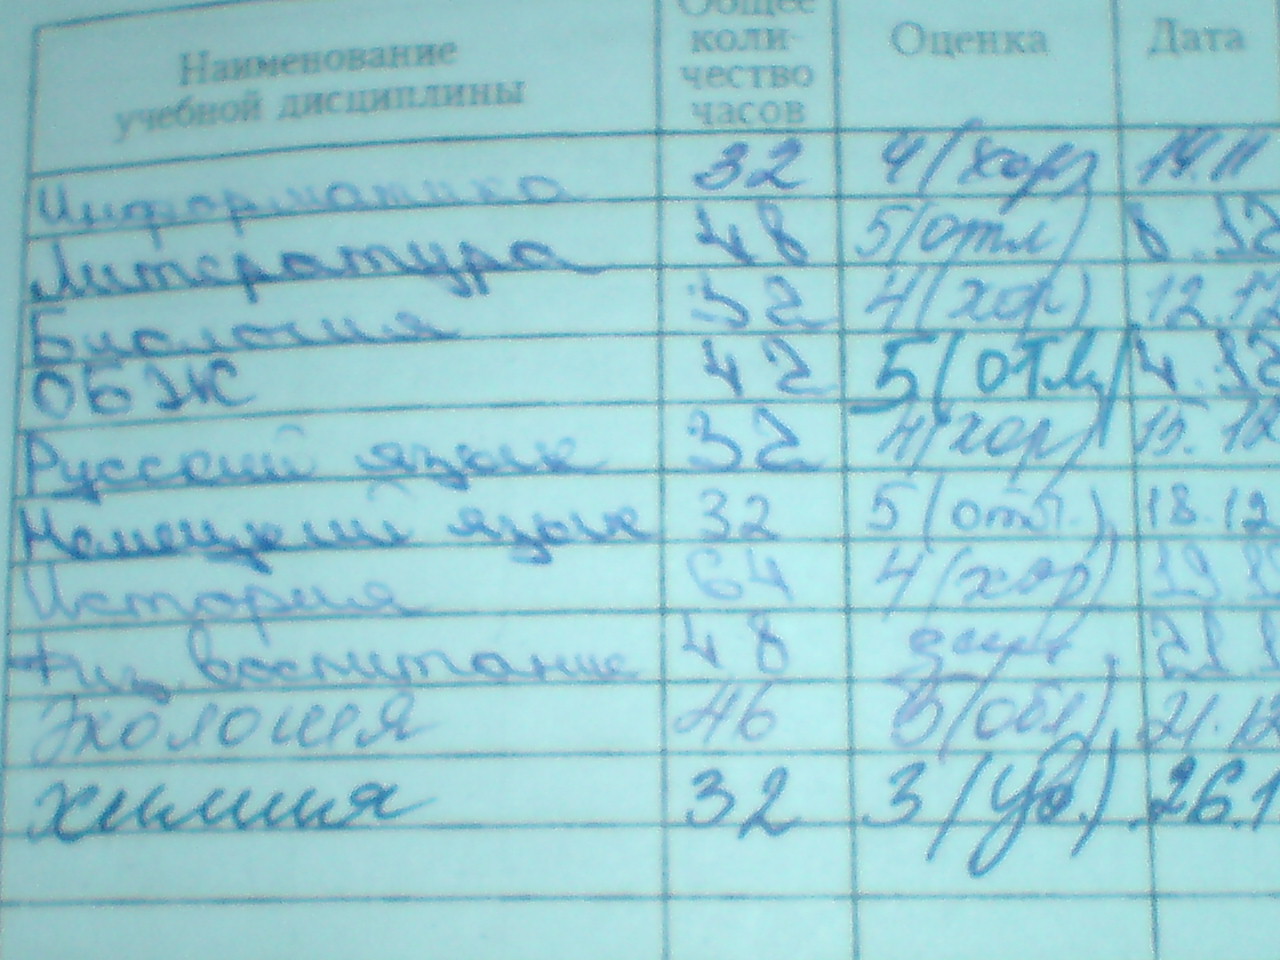 Наименование учебной дисциплины Общее коли-чество часов Оценка Дата
Информатика 32 4(хор) 19.11
Литература 48 5(отл) 8.12
Биология 32 4(хор) 12.12
ОБЖ 42 5(отл) 4.12
Русский язык 32 4(хор) 15.12
Немецкий язык 32 5(отл.) 18.12
История 64 4(хор) 19.1
Физ воспитание 48
Экология 46 21.12
Химия 32 3(уд.) 26.1